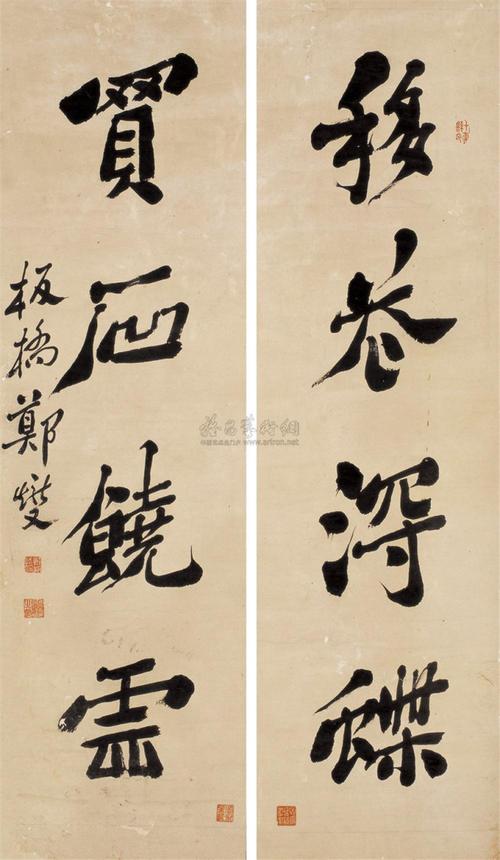 移花得蝶
買石饒雲
板橋鄭燮
雅昌藝術網
www.artron.net